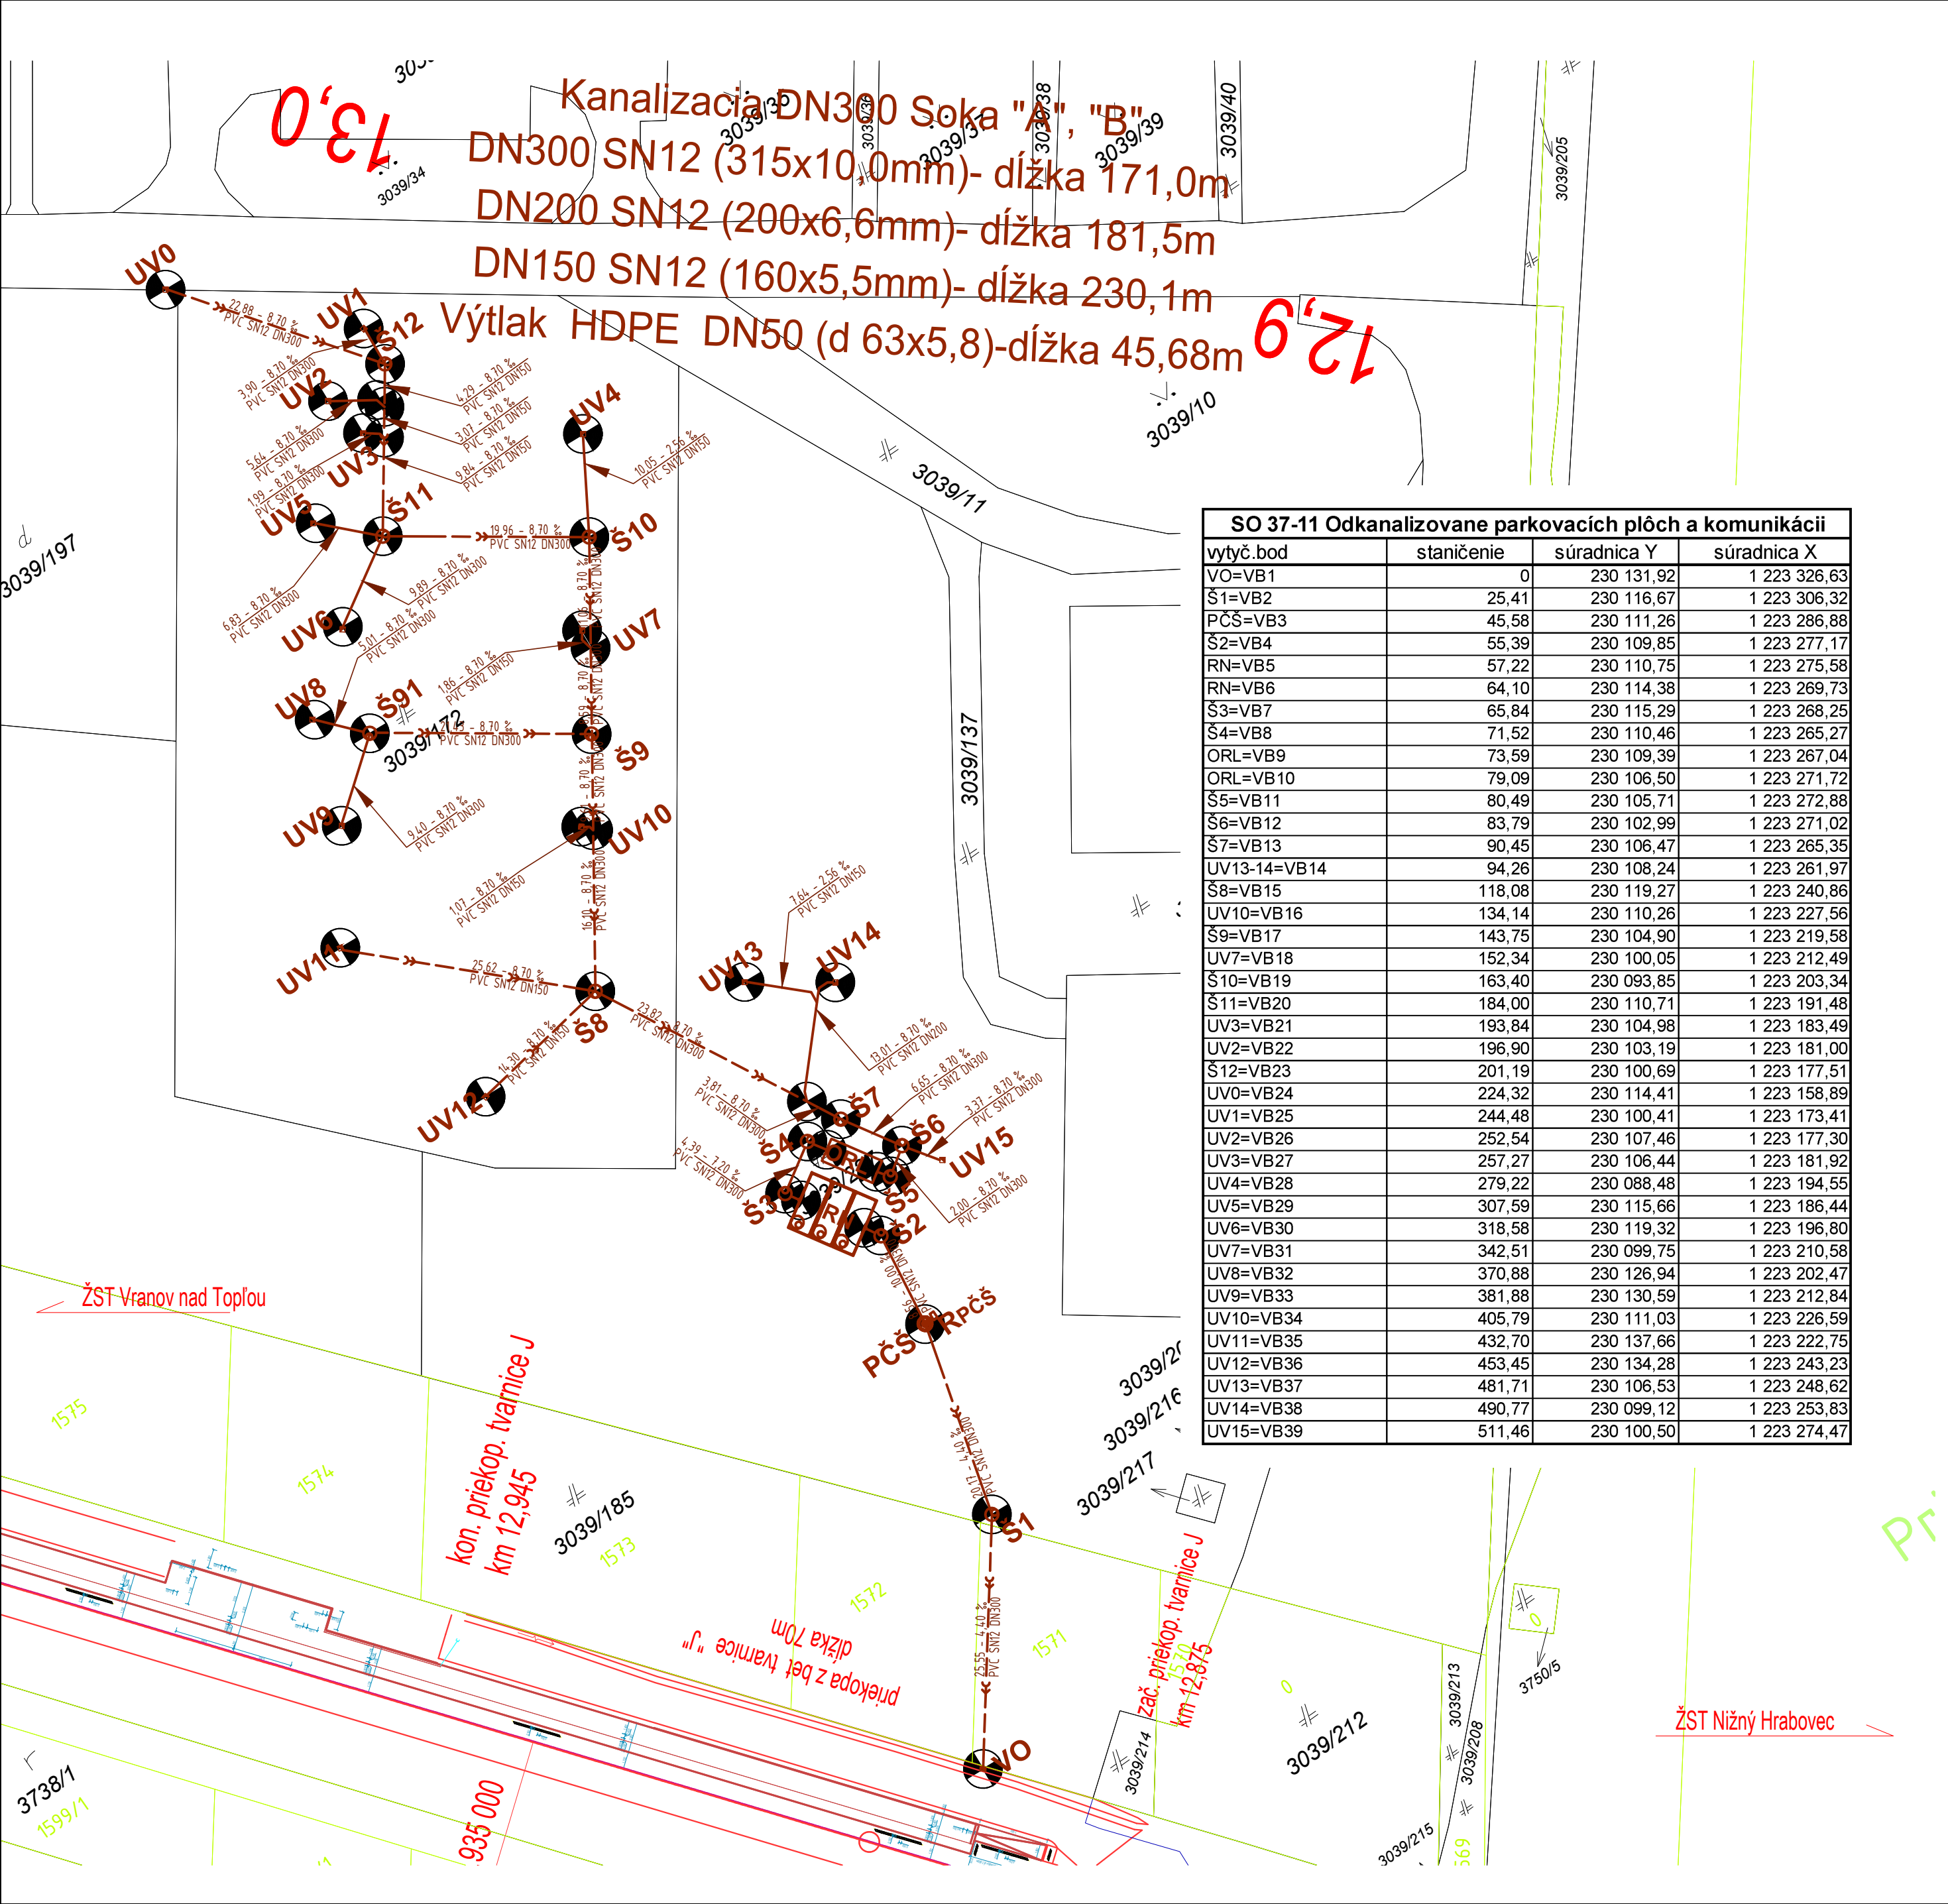 Kanalizacia DN300 Soka "A", "B"
DN300 SN12 (315x10,0mm)- dĺžka 171,0m
DN200 SN12 (200x6,6mm)- dĺžka 181,5m
DN150 SN12 (160x5,5mm)- dĺžka 230,1m
Výtlak HDPE DN50 (d 63x5,8)-dĺžka 45,68m
13,0
12,9
3039/34
3039/37
3039/38
3039/39
3039/40
3039/205
3039/10
3039/11
3039/197
3039/172
3039/137
UV0
22,88 - 8,70 ‰
PVC SN12 DN300
UV1
Š12
3,90 - 8,70 ‰
PVC SN12 DN300
UV2
4,29 - 8,70 ‰
PVC SN12 DN150
3,07 - 8,70 ‰
PVC SN12 DN150
5,64 - 8,70 ‰
PVC SN12 DN300
UV3
9,84 - 8,70 ‰
PVC SN12 DN150
1,99 - 8,70 ‰
PVC SN12 DN300
UV4
10,05 - 2,56 ‰
PVC SN12 DN150
UV5
Š11
19,96 - 8,70 ‰
PVC SN12 DN300
Š10
6,83 - 8,70 ‰
PVC SN12 DN300
9,89 - 8,70 ‰
PVC SN12 DN300
UV6
5,01 - 8,70 ‰
PVC SN12 DN300
UV7
1,86 - 8,70 ‰
PVC SN12 DN150
UV8
Š91
PVC SN12 DN300
Š9
UV9
9,40 - 8,70 ‰
PVC SN12 DN300
UV10
1,07 - 8,70 ‰
PVC SN12 DN150
16,10 - 8,70 ‰
PVC SN12 DN300
UV11
25,62 - 8,70 ‰
PVC SN12 DN150
Š8
14,30 - 8,70 ‰
PVC SN12 DN150
UV12
23,82 - 8,70 ‰
PVC SN12 DN300
UV13
UV14
7,64 - 2,56 ‰
PVC SN12 DN150
13,01 - 8,70 ‰
PVC SN12 DN200
6,65 - 8,70 ‰
PVC SN12 DN300
3,37 - 8,70 ‰
PVC SN12 DN300
3,81 - 8,70 ‰
PVC SN12 DN300
4,39 - 7,20 ‰
PVC SN12 DN300
2,00 - 8,70 ‰
PVC SN12 DN300
Š7
Š6
UV15
Š4
ORL
Š5
Š3
RN
Š2
RPČŠ
PČŠ
20,17 - 4,40 ‰
PVC SN12 DN300
Š1
25,55 - 4,40 ‰
PVC SN12 DN300
VO
SO 37-11 Odkanalizovane parkovacích plôch a komunikácii
vytyč.bod staničenie súradnica Y súradnica X
VO=VB1 0 230 131,92 1 223 326,63
Š1=VB2 25,41 230 116,67 1 223 306,32
PČŠ=VB3 45,58 230 111,26 1 223 286,88
Š2=VB4 55,39 230 109,85 1 223 277,17
RN=VB5 57,22 230 110,75 1 223 275,58
RN=VB6 64,10 230 114,38 1 223 269,73
Š3=VB7 65,84 230 115,29 1 223 268,25
Š4=VB8 71,52 230 110,46 1 223 265,27
ORL=VB9 73,59 230 109,39 1 223 267,04
ORL=VB10 79,09 230 106,50 1 223 271,72
Š5=VB11 80,49 230 105,71 1 223 272,88
Š6=VB12 83,79 230 102,99 1 223 271,02
Š7=VB13 90,45 230 106,47 1 223 265,35
UV13-14=VB14 94,26 230 108,24 1 223 261,97
Š8=VB15 118,08 230 119,27 1 223 240,86
UV10=VB16 134,14 230 110,26 1 223 227,56
Š9=VB17 143,75 230 104,90 1 223 219,58
UV7=VB18 152,34 230 100,05 1 223 212,49
Š10=VB19 163,40 230 093,85 1 223 203,34
Š11=VB20 184,00 230 110,71 1 223 191,48
UV3=VB21 193,84 230 104,98 1 223 183,49
UV2=VB22 196,90 230 103,19 1 223 181,00
Š12=VB23 201,19 230 100,69 1 223 177,51
UV0=VB24 224,32 230 114,41 1 223 158,89
UV1=VB25 244,48 230 100,41 1 223 173,41
UV2=VB26 252,54 230 107,46 1 223 177,30
UV3=VB27 257,27 230 106,44 1 223 181,92
UV4=VB28 279,22 230 088,48 1 223 194,55
UV5=VB29 307,59 230 115,66 1 223 186,44
UV6=VB30 318,58 230 119,32 1 223 196,80
UV7=VB31 342,51 230 099,75 1 223 210,58
UV8=VB32 370,88 230 126,94 1 223 202,47
UV9=VB33 381,88 230 130,59 1 223 212,84
UV10=VB34 405,79 230 111,03 1 223 226,59
UV11=VB35 432,70 230 137,66 1 223 222,75
UV12=VB36 453,45 230 134,28 1 223 243,23
UV13=VB37 481,71 230 106,53 1 223 248,62
UV14=VB38 490,77 230 099,12 1 223 253,83
UV15=VB39 511,46 230 100,50 1 223 274,47
ŽST Vranov nad Topľou
kon. priekop. tvarnice J
km 12,945
3039/216
3039/217
3039/185
1575
1574
1573
1572
1571
1570
priekopa z bet tvarnice "J"
dĺžka 70m
zač. priekop. tvarnice J
km 12,875
0
0
3039/214
3039/212
3039/213
3039/208
3039/215
3750/5
ŽST Nižný Hrabovec
3738/1
1599/1
935 000
569